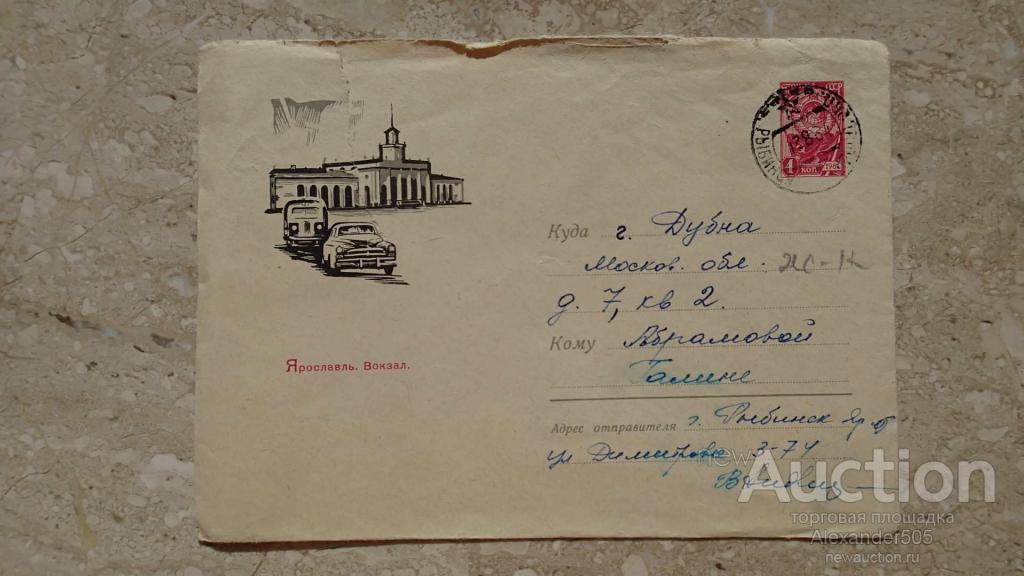 РЫБИНСК
4 КОП 1961
Куда г. Дубна
Москов. обл.
д. 7, кв 2.
Кому Абрамовой
Галине
Ярославль. Вокзал.
Адрес отправителя г. Рыбинск Яр. о
ул Димитрова 3-74
new
Auction
торговая площадка
Alexander505
newauction.ru